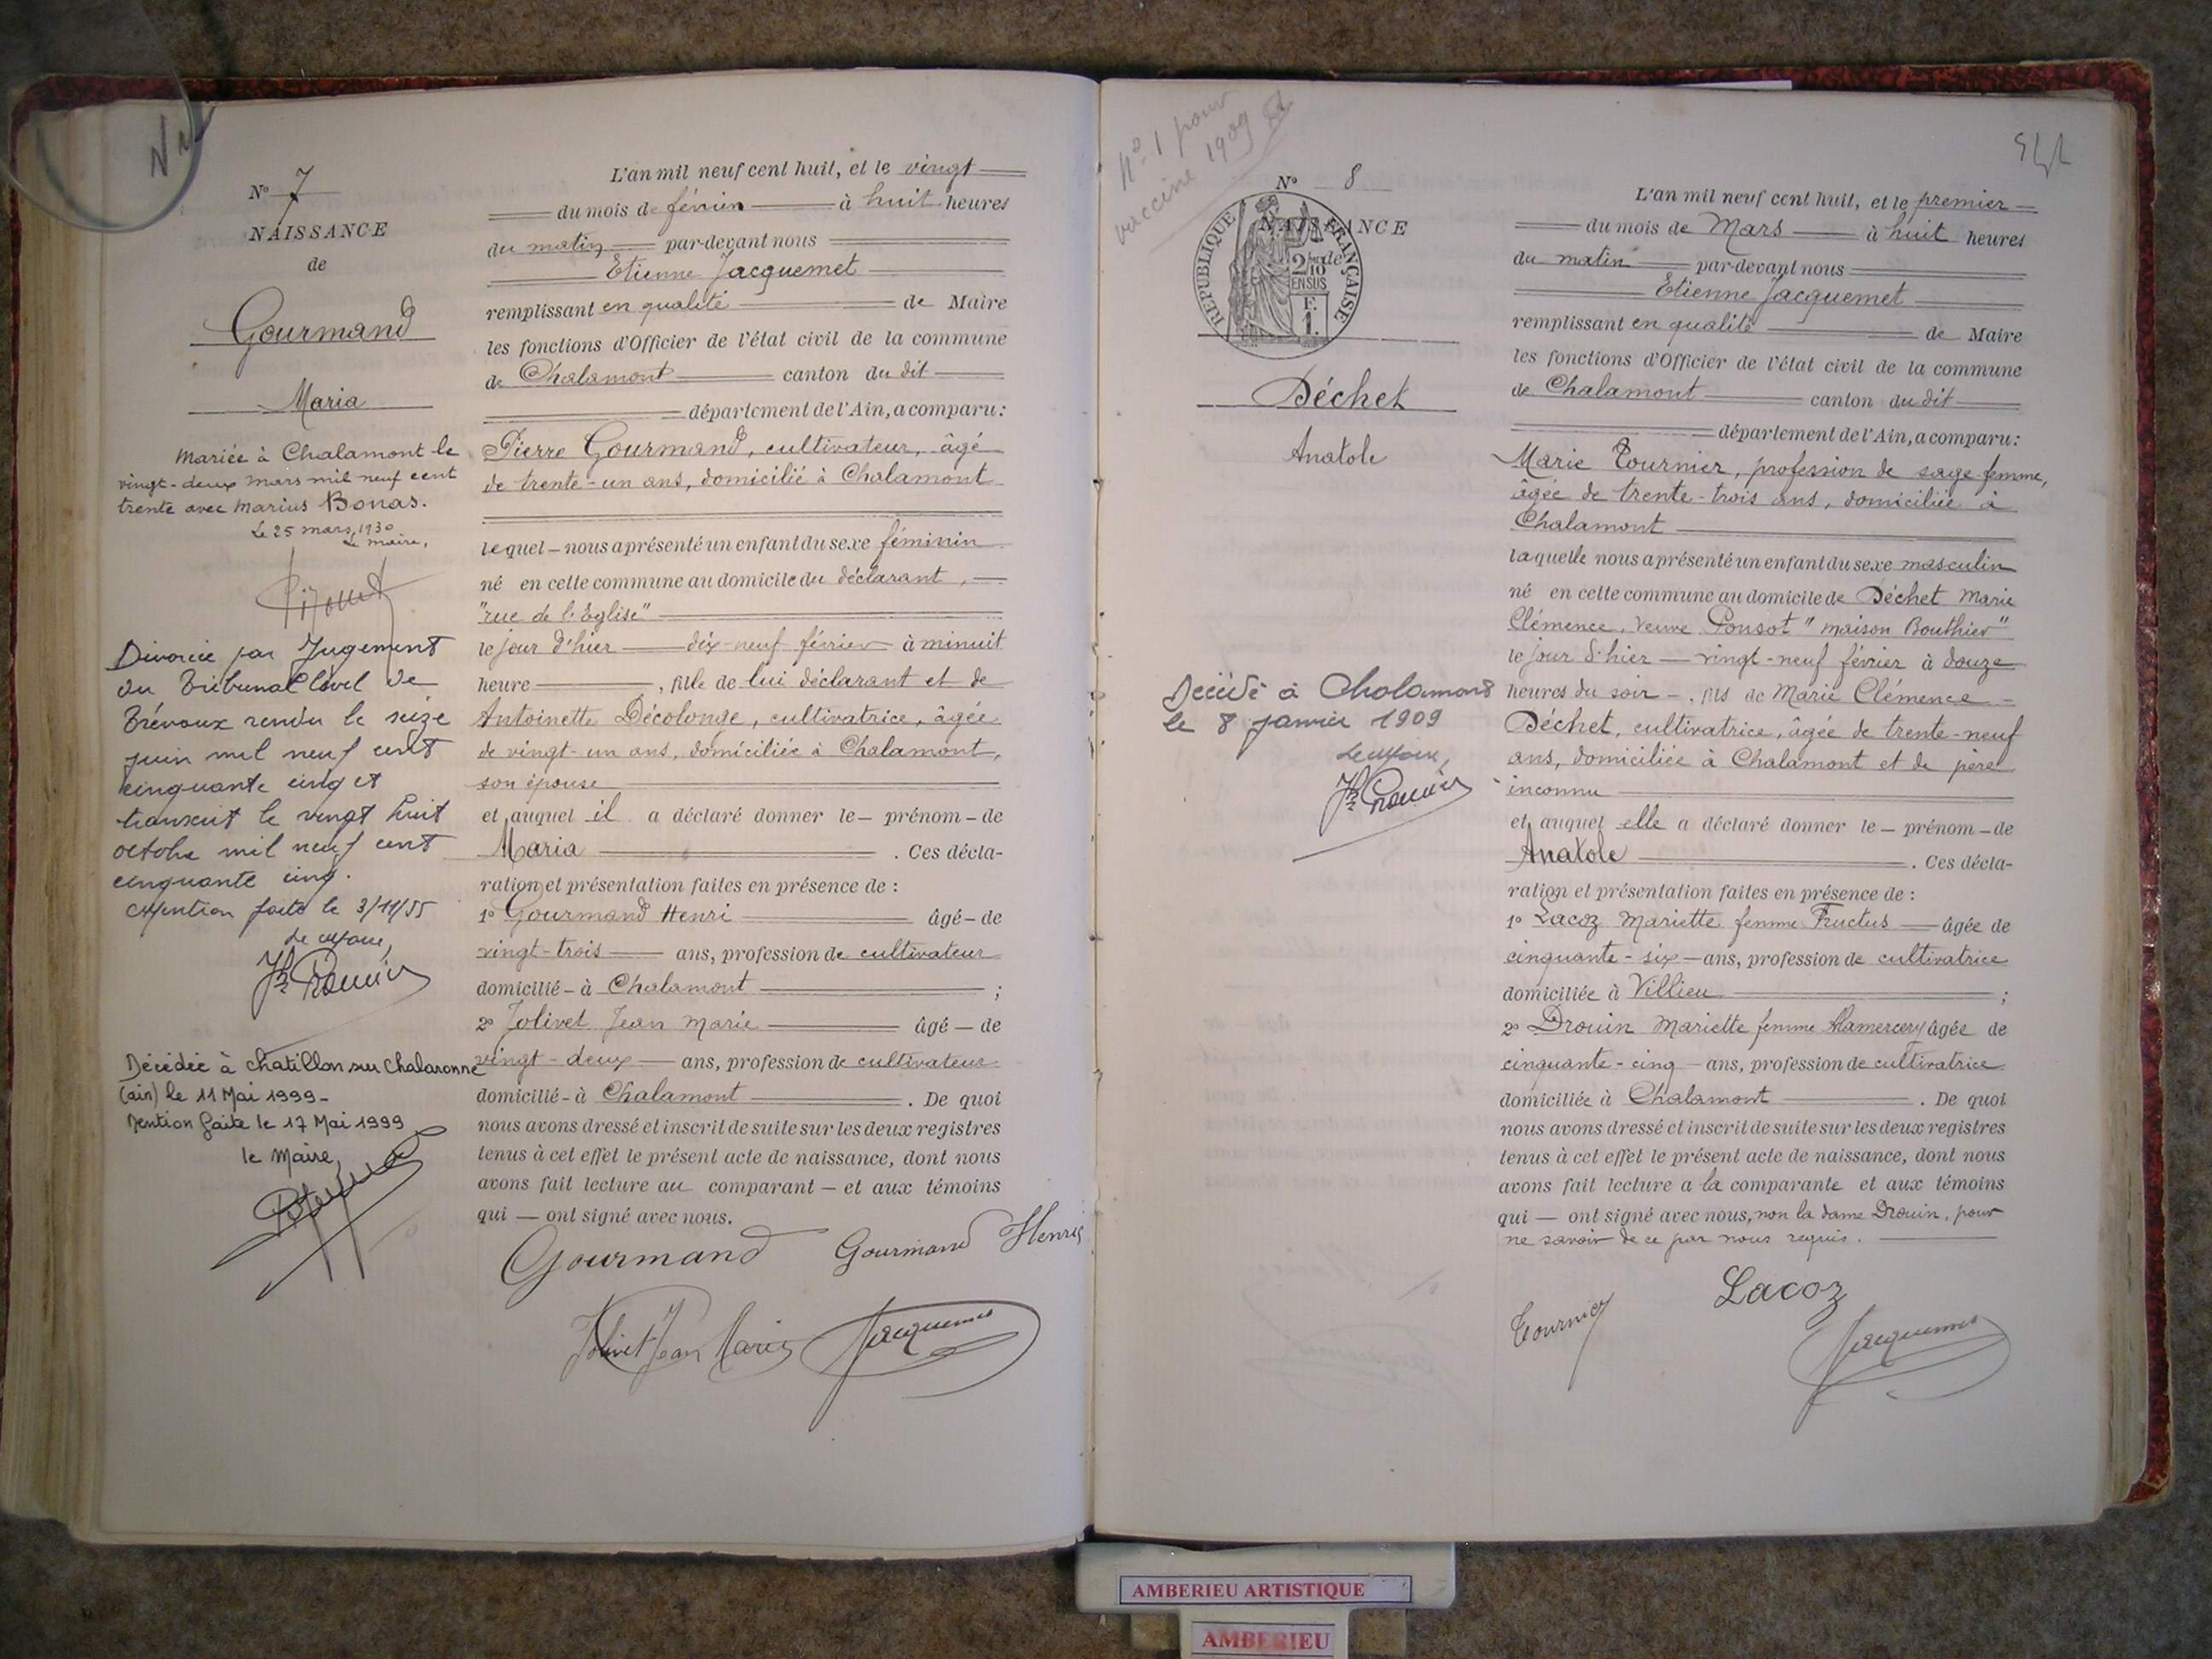 N° 7
NAISSANCE
de
Gourmand
Maria
Mariée à Chalamont le
vingt-deux mars mil neuf cent
trente avec Marius Bonas.
Le 25 mars 1930
Le maire,
Divorcée par Jugement
du Tribunal Civil de
Trévoux rendu le seize
juin mil neuf cent
cinquante cinq et
transcrit le vingt huit
octobre mil neuf cent
cinquante cinq.
Mention faite le 3/11/55
Le Maire,
Décédée à Chatillon sur Chalaronne
(ain) le 11 Mai 1999-
Mention faite le 17 Mai 1999
le Maire,
L'an mil neuf cent huit, et le vingt
du mois de février à huit heures
du matin par-devant nous
Etienne Jacquemet
remplissant en qualité de Maire
les fonctions d'Officier de l'état civil de la commune
de Chalamont canton du dit
département de l'Ain, a comparu:
Pierre Gourmand, cultivateur, âgé
de trente-un ans, domicilié à Chalamont
lequel – nous a présenté un enfant du sexe féminin
né en cette commune au domicile du déclarant,
"rue de l'Eglise"
le jour d'hier dix-neuf février à minuit
heure , fille de lui déclarant et de
Antoinette Décolonge, cultivatrice, âgée
de vingt-un ans, domiciliée à Chalamont,
son épouse
et auquel il a déclaré donner le – prénom – de
Maria . Ces décla-
ration et présentation faites en présence de :
1° Gourmand Henri âgé – de
vingt-trois ans, profession de cultivateur
domicilié – à Chalamont ;
2° Jolivet Jean Marie âgé – de
vingt-deux ans, profession de cultivateur
domicilié - à Chalamont . De quoi
nous avons dressé et inscrit de suite sur les deux registres
tenus à cet effet le présent acte de naissance, dont nous
avons fait lecture au comparant – et aux témoins
qui — ont signé avec nous.
Gourmand Gourmand Henri
Jolivet Jean Marie Jacquemet
N° 1 pour
vaccine 1909
N° 8
NAISSANCE
RÉPUBLIQUE FRANÇAISE
2/10
EN SUS
F.
1.
Déchet
Anatole
Décédé à Chalamont
le 8 janvier 1909
Le Maire,
L'an mil neuf cent huit, et le premier
du mois de Mars à huit heures
du matin par-devant nous
Etienne Jacquemet
remplissant en qualité de Maire
les fonctions d'Officier de l'état civil de la commune
de Chalamont canton du dit
département de l'Ain, a comparu:
Marie Tournier, profession de sage-femme,
âgée de trente-trois ans, domiciliée à
Chalamont
laquelle nous a présenté un enfant du sexe masculin
né en cette commune au domicile de Déchet Marie
Clémence, veuve Ponsot "maison Bouthier"
le jour d'hier — vingt-neuf février à douze
heures du soir – , fils de Marie Clémence
Déchet, cultivatrice, âgée de trente-neuf
ans, domiciliée à Chalamont et de père
inconnu
et auquel elle a déclaré donner le – prénom – de
Anatole . Ces décla-
ration et présentation faites en présence de :
1° Lacoz Mariette femme Fructus — âgée de
cinquante-six — ans, profession de cultivatrice
domiciliée à Villieu ;
2° Drouin Mariette femme Hamercery âgée de
cinquante-cinq — ans, profession de cultivatrice
domiciliée à Chalamont . De quoi
nous avons dressé et inscrit de suite sur les deux registres
tenus à cet effet le présent acte de naissance, dont nous
avons fait lecture a la comparante et aux témoins
qui — ont signé avec nous, non la dame Drouin, pour
ne savoir de ce par nous requis.
Tournier Lacoz
Jacquemet
AMBERIEU ARTISTIQUE
AMBERIEU